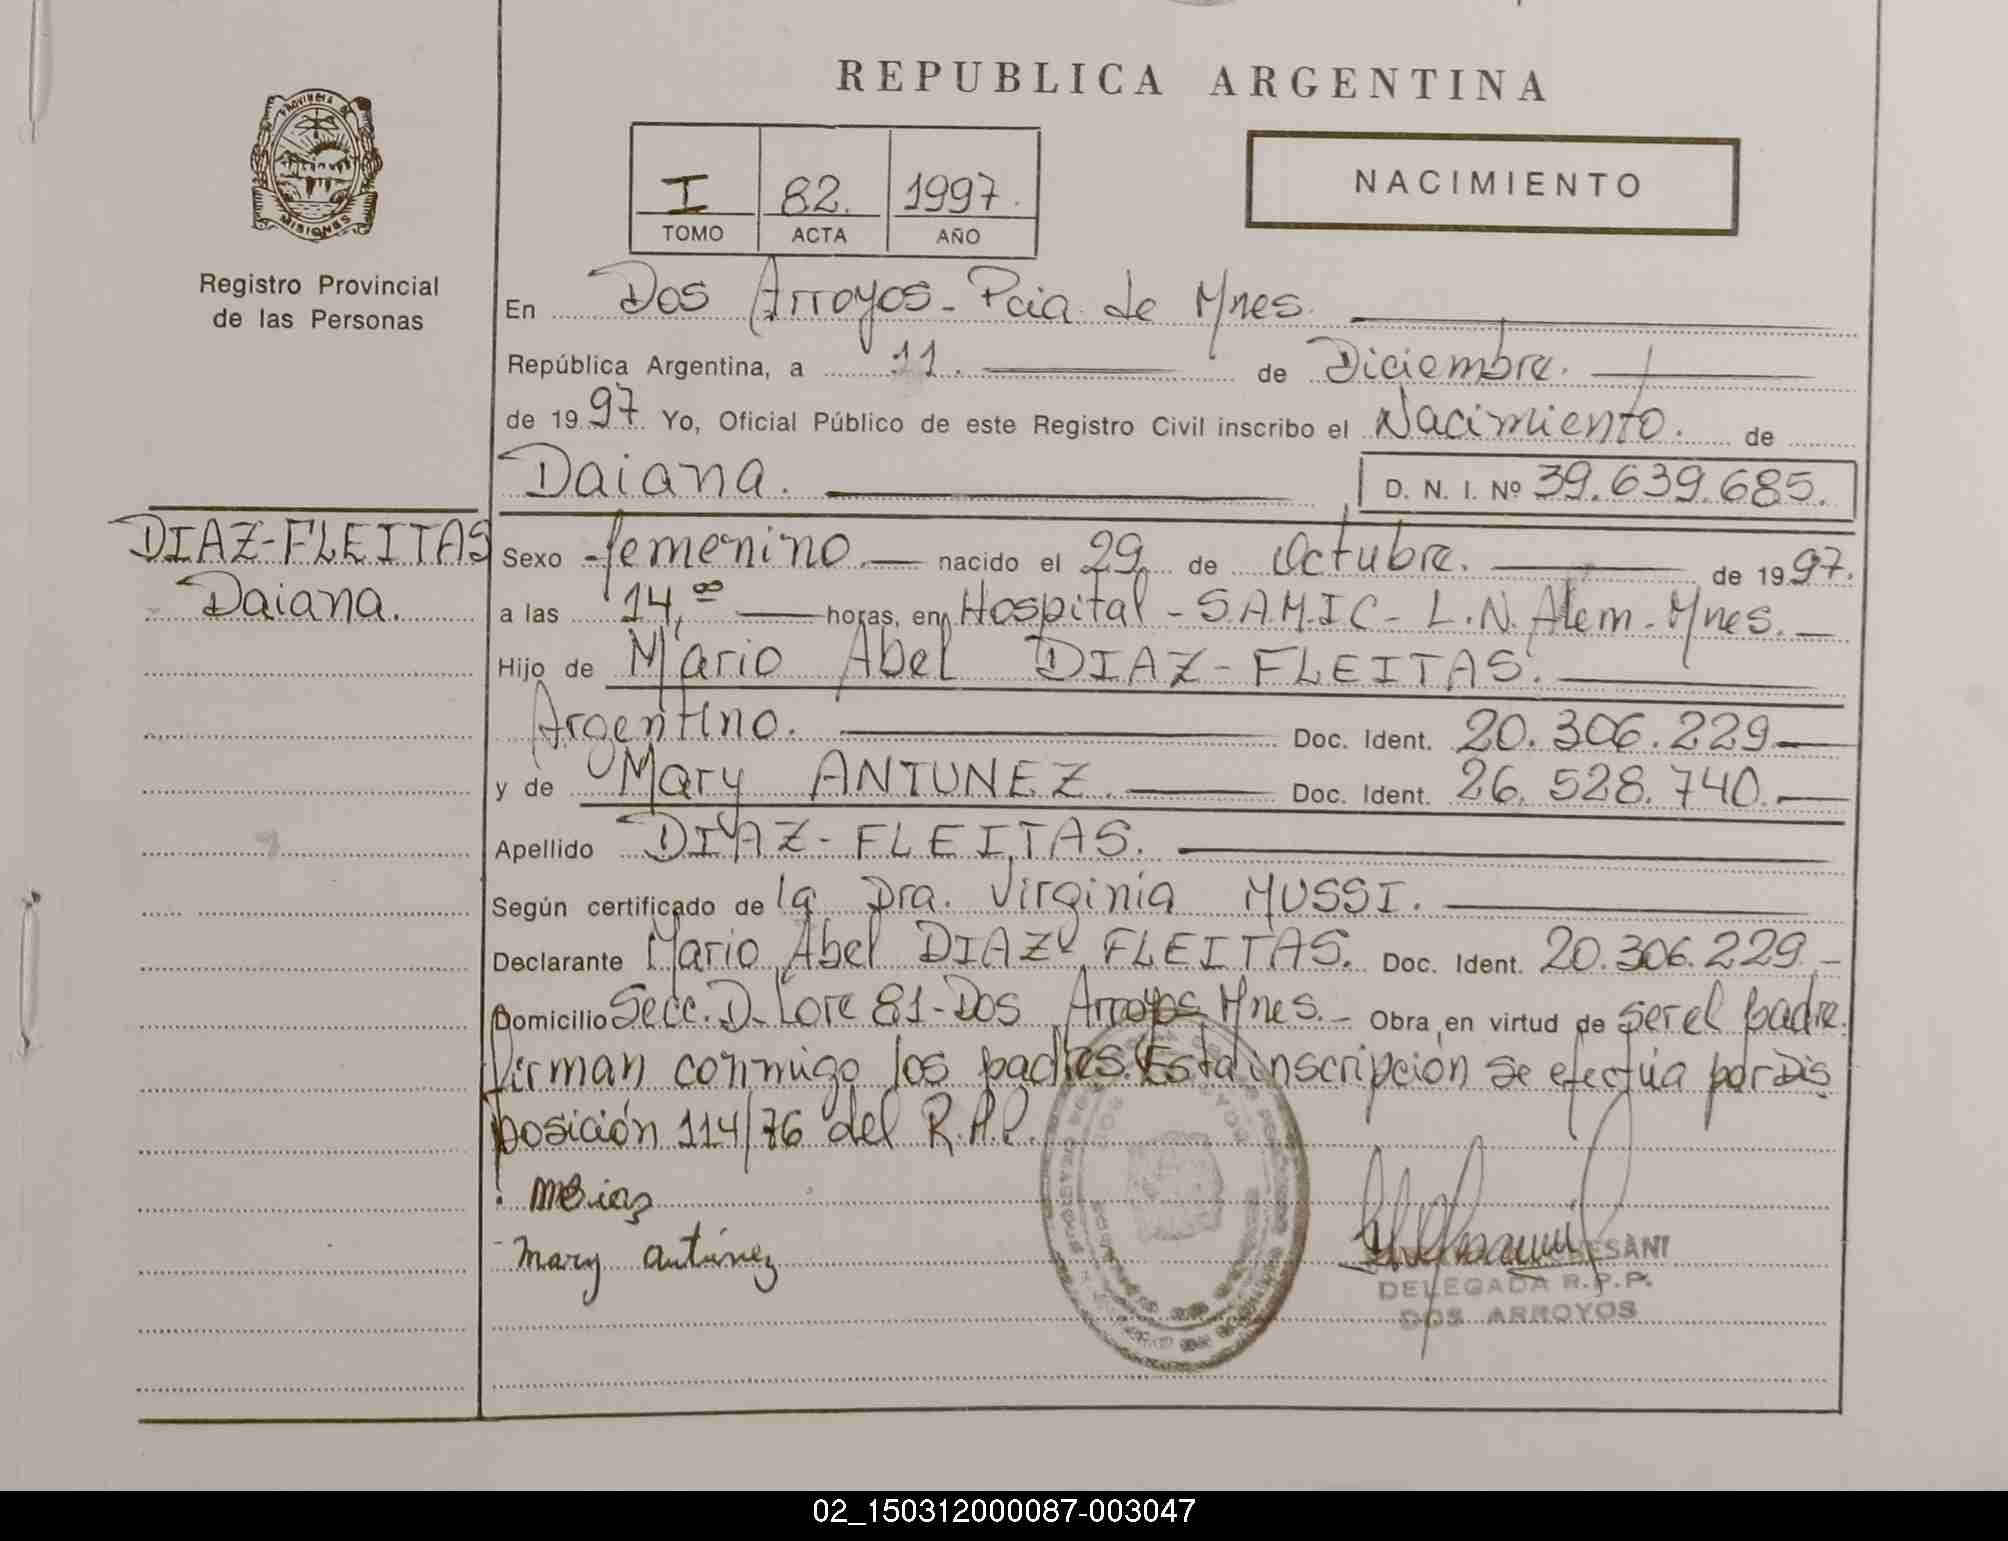 REPUBLICA ARGENTINA
PROVINCIA DE
MISIONES
Registro Provincial
de las Personas
I 82. 1997.
TOMO ACTA AÑO
NACIMIENTO
En Dos Arroyos - Pcia. de Mnes.
República Argentina, a 11. de Diciembre.
de 1997. Yo, Oficial Público de este Registro Civil inscribo el Nacimiento. de
Daiana. D. N. I. Nº 39.639.685.
DIAZ-FLEITAS
Daiana.
Sexo femenino. nacido el 29 de Octubre. de 1997.
a las 14,⁰⁰ horas, en Hospital - S.A.M.I.C - L.N. Alem - Mnes.
Hijo de Mario Abel DIAZ - FLEITAS.
Argentino. Doc. Ident. 20.306.229
y de Mary ANTUNEZ. Doc. Ident. 26.528.740.
Apellido DIAZ - FLEITAS.
Según certificado de la Dra. Virginia MUSSI.
Declarante Mario Abel DIAZ - FLEITAS. Doc. Ident. 20.306.229.-
Domicilio Secc. D. Lote 81 - Dos Arroyos Mnes. - Obra en virtud de ser el padre.
firman conmigo los padres. Esta inscripción se efectúa por Dis
posición 114/76 del R.P.P.
Mary Antúnez
DELEGADA R.P.P.
DOS ARROYOS
02_150312000087-003047